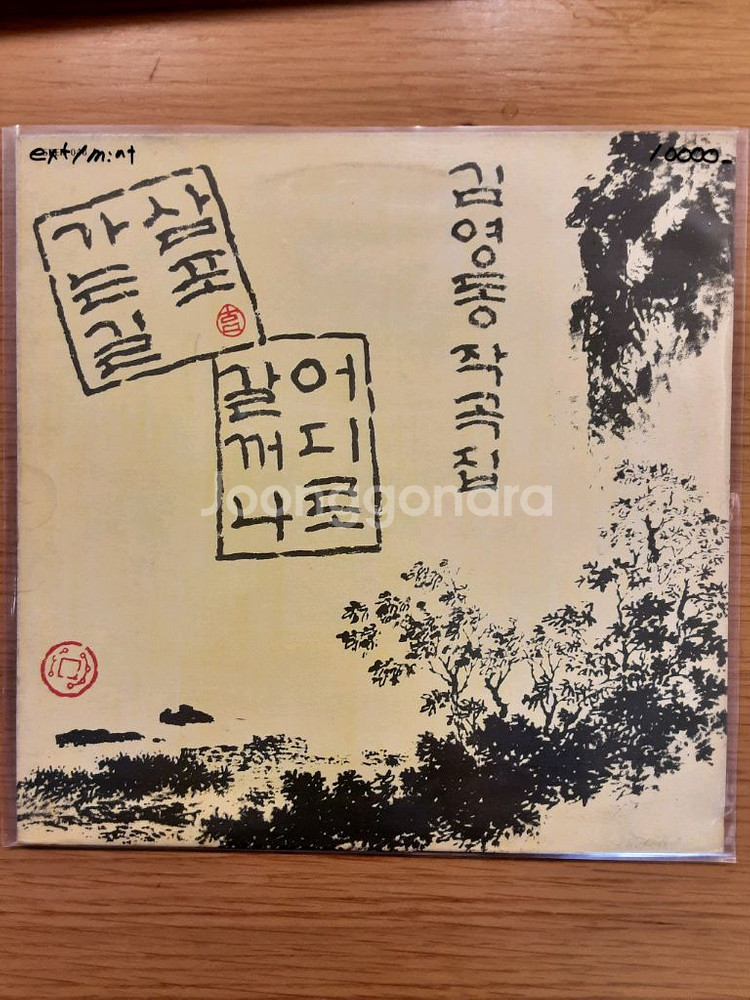 ex+/mint
10000-
삼포
가는길
어디로
갈꺼나
김영동 작곡집
Joonggonara